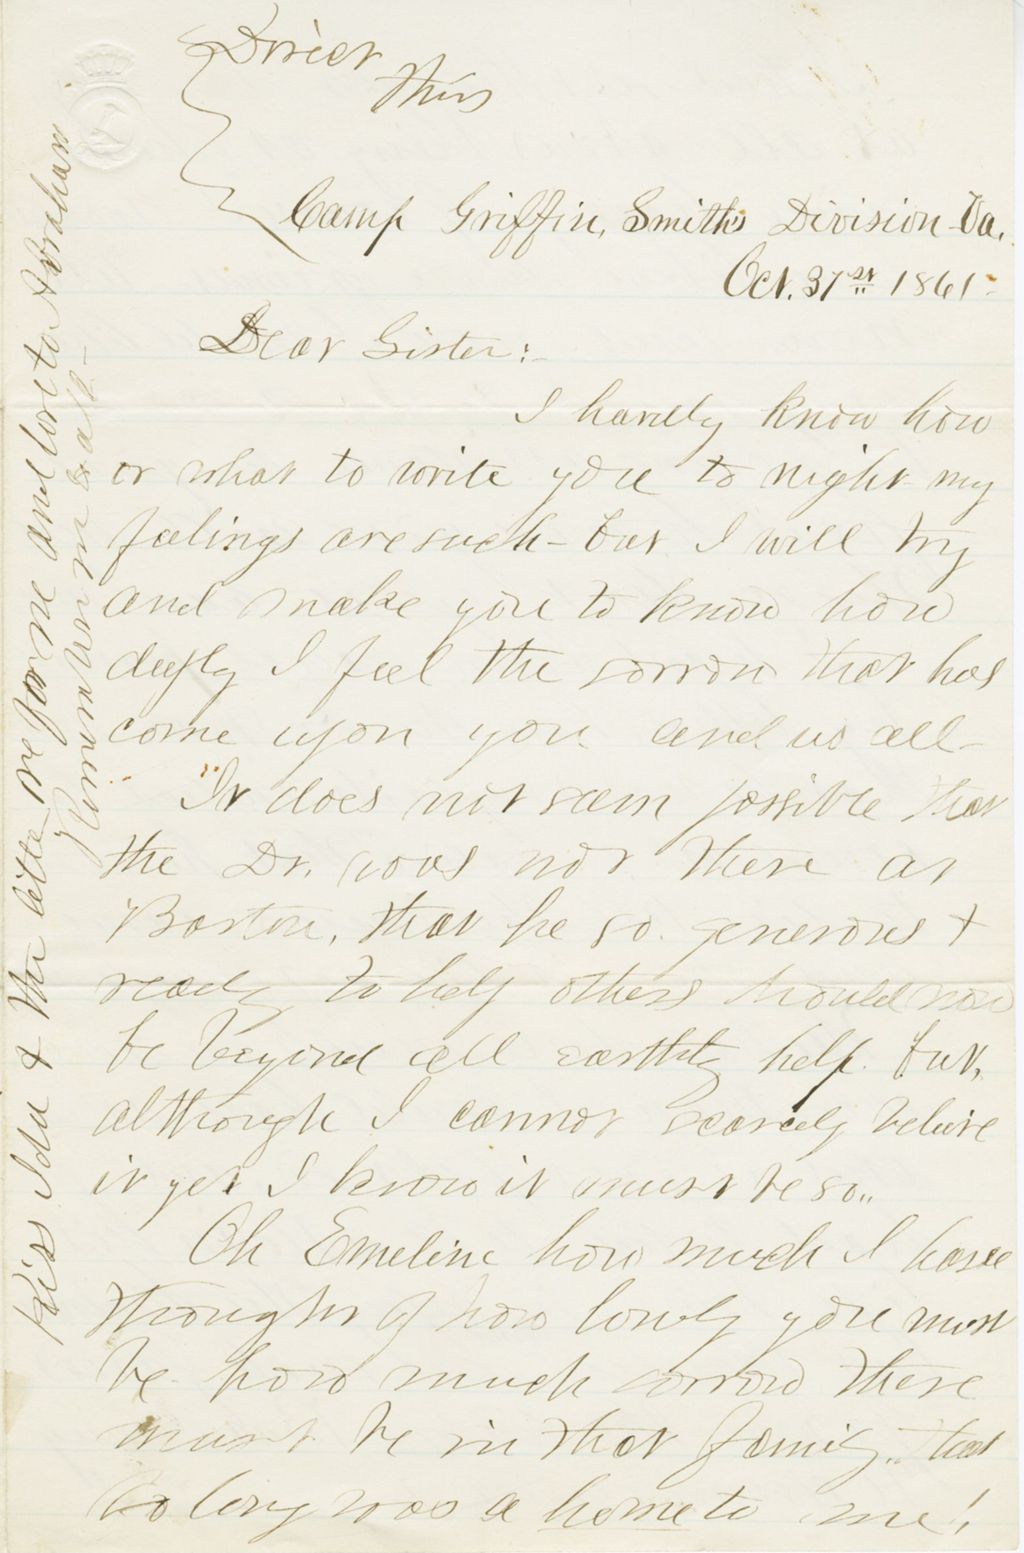 Direct
this
Camp Griffin, Smith's Division Va.
Oct. 31st 1861
Dear Sister:-
I hardly know how
or what to write you to night my
feelings are such - but I will try
and make you to know how
deeply I feel the sorrow that has
come upon you and us all -
It does not seem possible that
the Dr. was not there at
Barton, that he so generous +
ready to help others should now
be beyond all earthly help. but,
although I cannot scarcely believe
it yet I know it must be so..
Oh Emeline how much I have
thought of how lonely you must
be how much sorrow there
must be in that family.. that
so long was a home to me!
Kiss Ida + the little one for me and love to Abraham
Remember me to all -